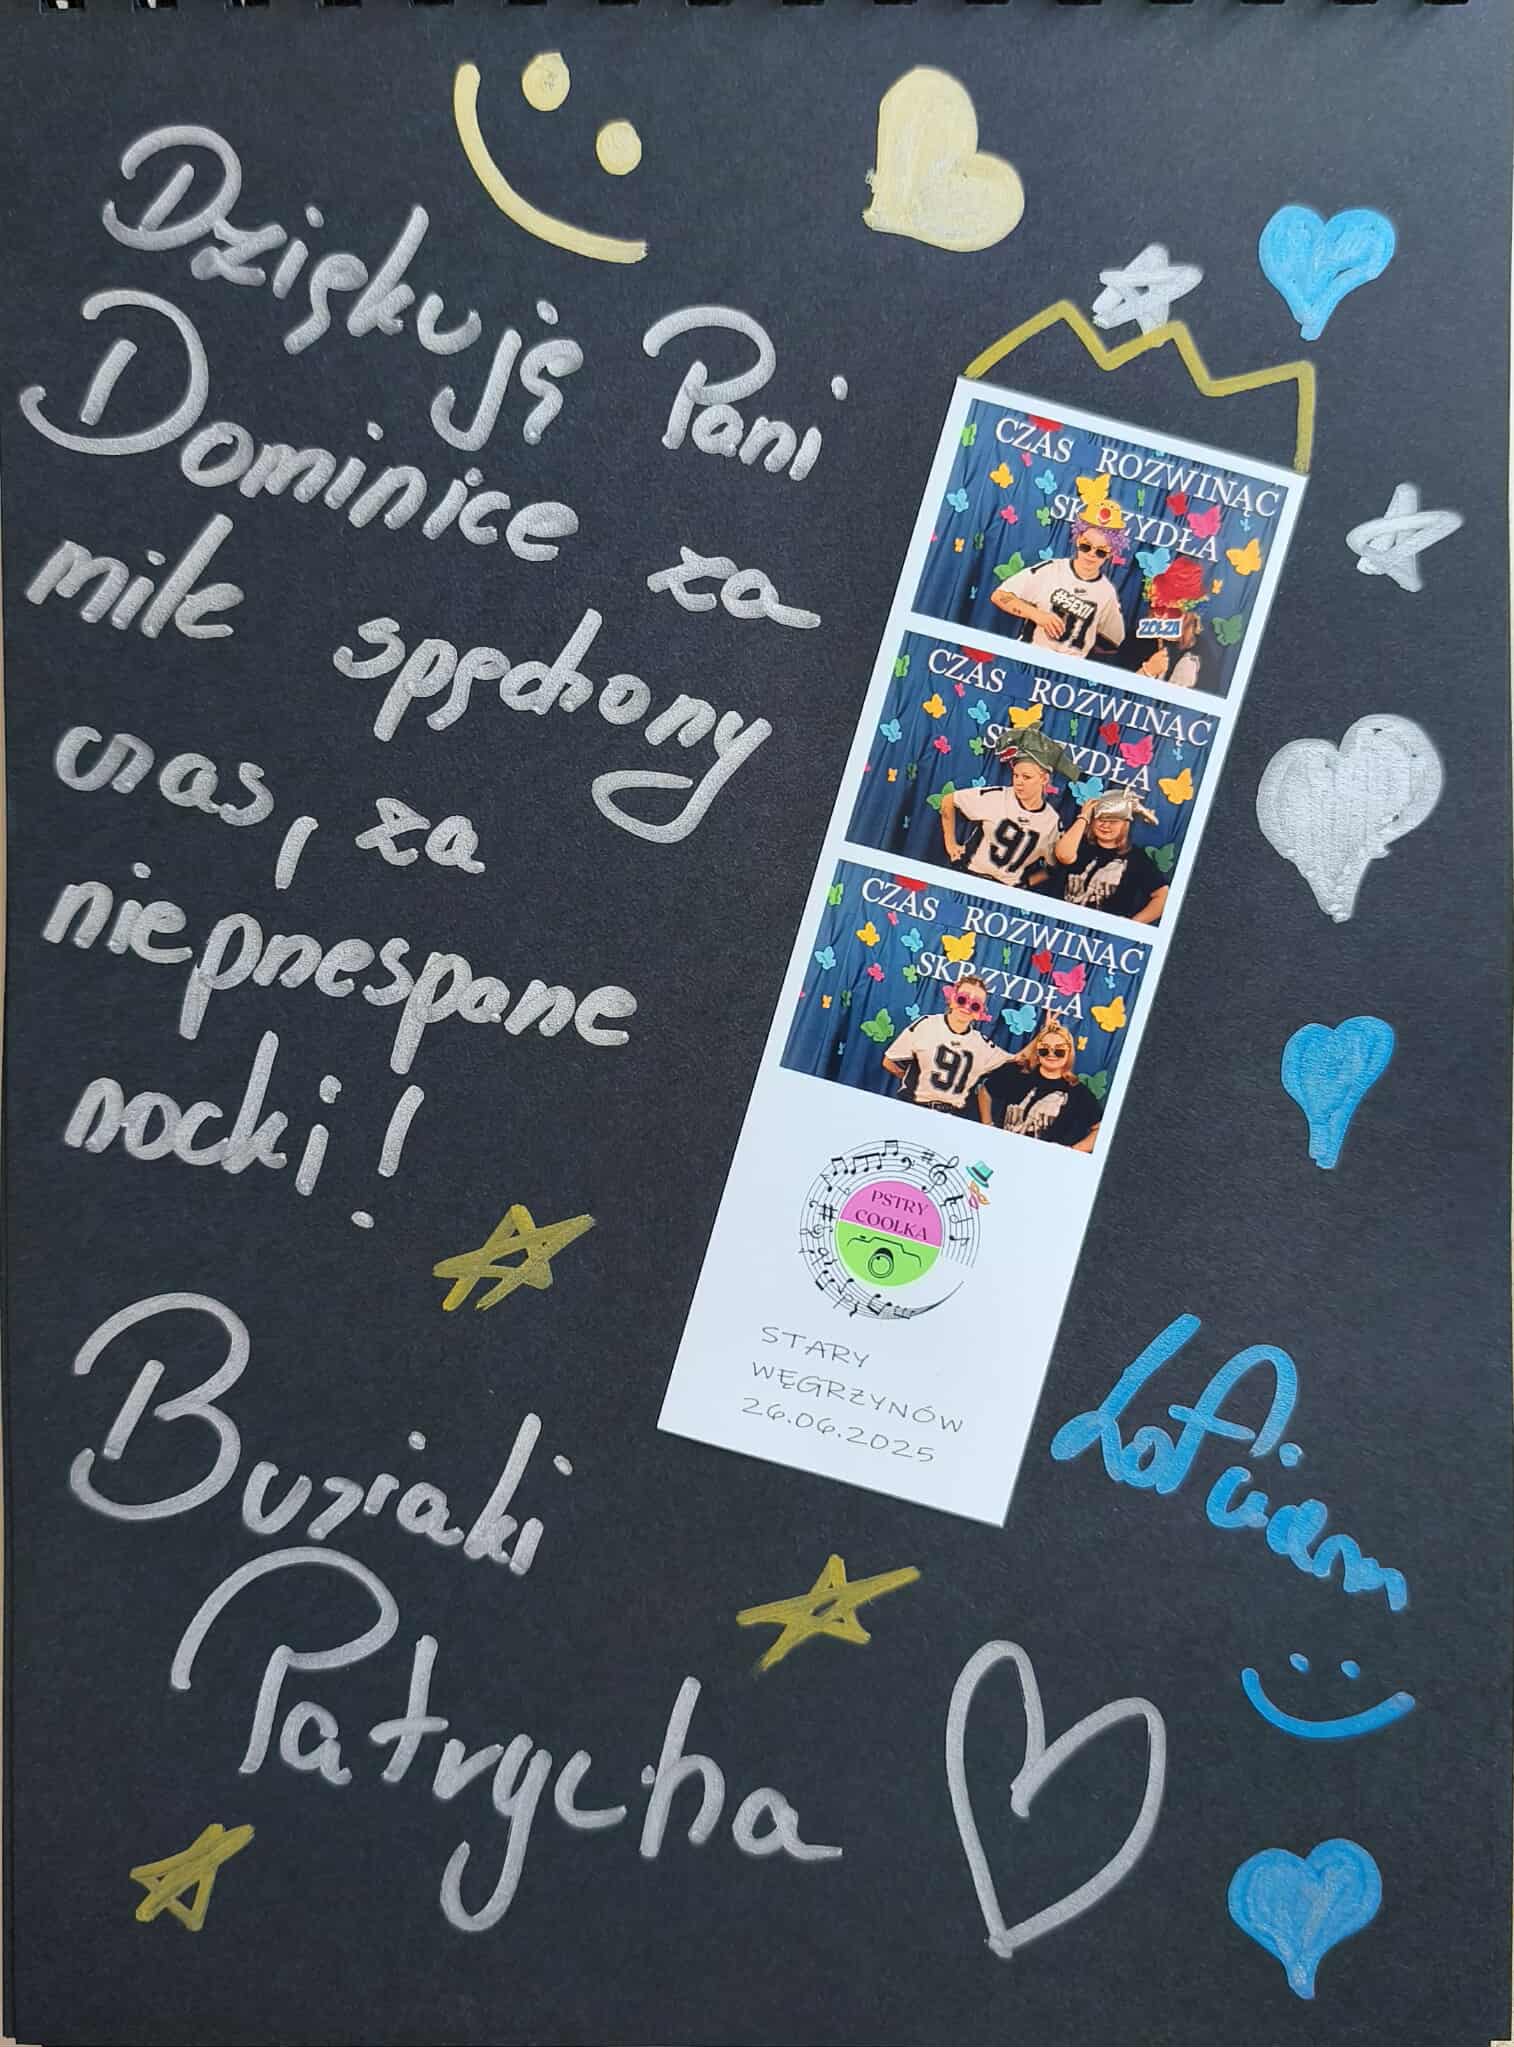 Dziękuję Pani
Dominice za
miłe spędzony
czas, za
nieprzespane
nocki!
Buziaki
Patrycha
CZAS ROZWINĄĆ
SKRZYDŁA
#SEXII
ZOŁZA
CZAS ROZWINĄĆ
SKRZYDŁA
91
CZAS ROZWINĄĆ
SKRZYDŁA
91
PSTRY
COOŁKA
STARY
WĘGRZYNÓW
26.06.2025